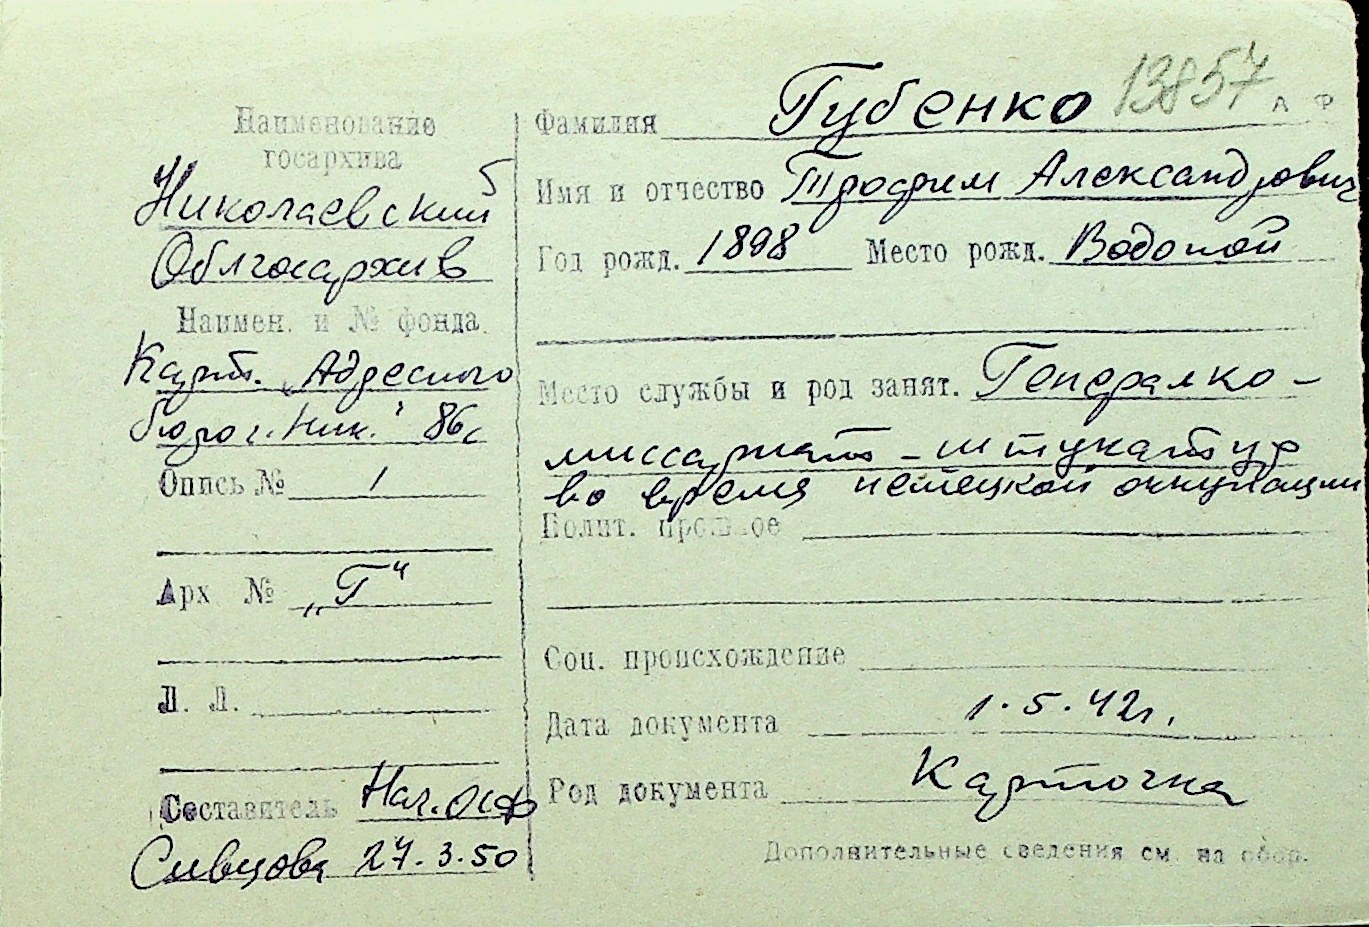 13857
А Ф
Наименование
госархива
Николаевский
Облгосархив
Наимен. и № фонда
Карт. "Адресного
бюро г. Ник." 86с
Опись № 1
Арх № „Г"
Л. Л.
Составитель Нач. осф
Сивцова 27.3.50
Фамилия Губенко
Имя и отчество Трофим Александрович
Год рожд. 1898 Место рожд. Водопой
Место службы и род занят. Генералко-
миссариат - штукатур
во время немецкой оккупации
Полит. прошлое
Соц. происхождение
Дата документа 1.5.42г.
Род документа Карточка
Дополнительные сведения см. на обор.